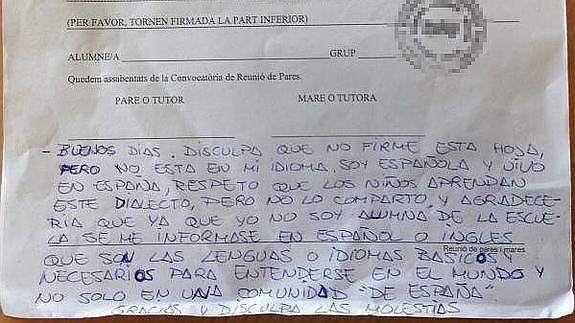 (PER FAVOR, TORNEN FIRMADA LA PART INFERIOR)
ALUMNE/A GRUP
Quedem assabentats de la Convocatòria de Reunió de Pares.
PARE O TUTOR MARE O TUTORA
- BUENOS DÍAS. DISCULPA QUE NO FIRME ESTA HOJA,
PERO NO ESTA EN MI IDIOMA, SOY ESPAÑOLA Y VIVO
EN ESPAÑA, RESPETO QUE LOS NIÑOS APRENDAN
ESTE DIALECTO, PERO NO LO COMPARTO, Y AGRADECE-
RÍA QUE YA QUE YO NO SOY ALUMNA DE LA ESCUE-
LA SE ME INFORMASE EN ESPAÑOL O INGLES
Reunió de pares i mares
QUE SON LAS LENGUAS O IDIOMAS BASICOS Y
NECESARIOS PARA ENTENDERSE EN EL MUNDO Y
NO SOLO EN UNA COMUNIDAD "DE ESPAÑA".
GRACIAS Y DISCULPA LAS MOLESTIAS